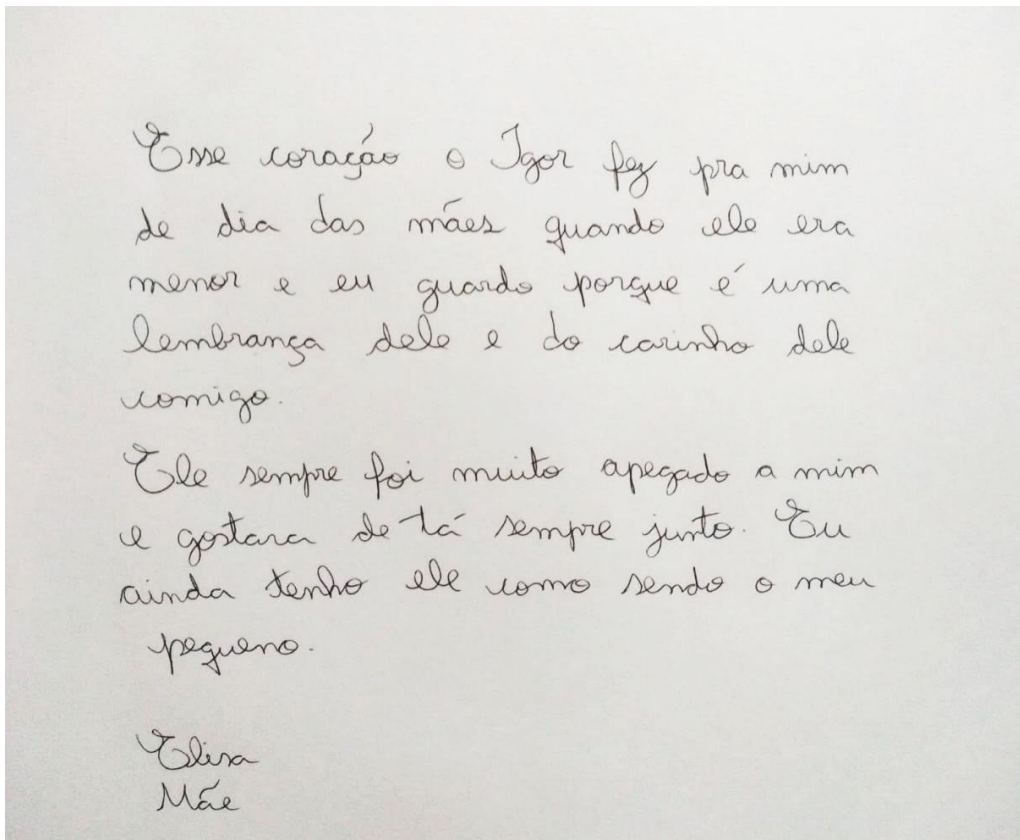 Esse coração o Igor fez pra mim
de dia das mães quando ele era
menor e eu guardo porque é uma
lembrança dele e do carinho dele
comigo.
Ele sempre foi muito apegado a mim
e gostava de tá sempre junto. Eu
ainda tenho ele como sendo o meu
pequeno.
Elisa
Mãe